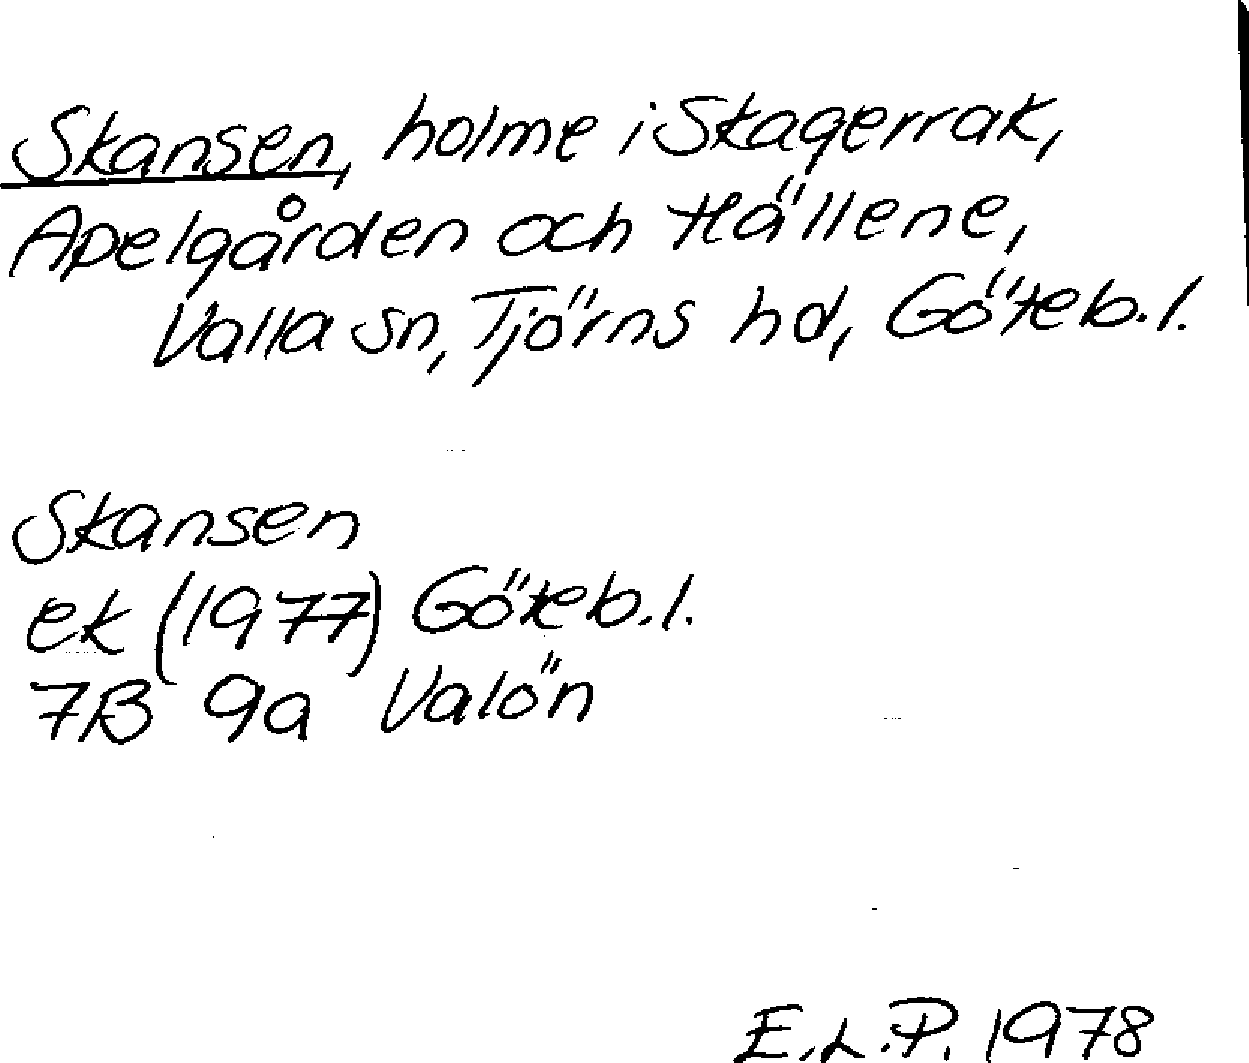 Skansen, holme i Skagerrak,
Apelgården och Hällene,
Valla sn, Tjörns hd, Göteb.l.
Skansen
ek (1977) Göteb.l.
7B 9a Valön
E.L.P. 1978